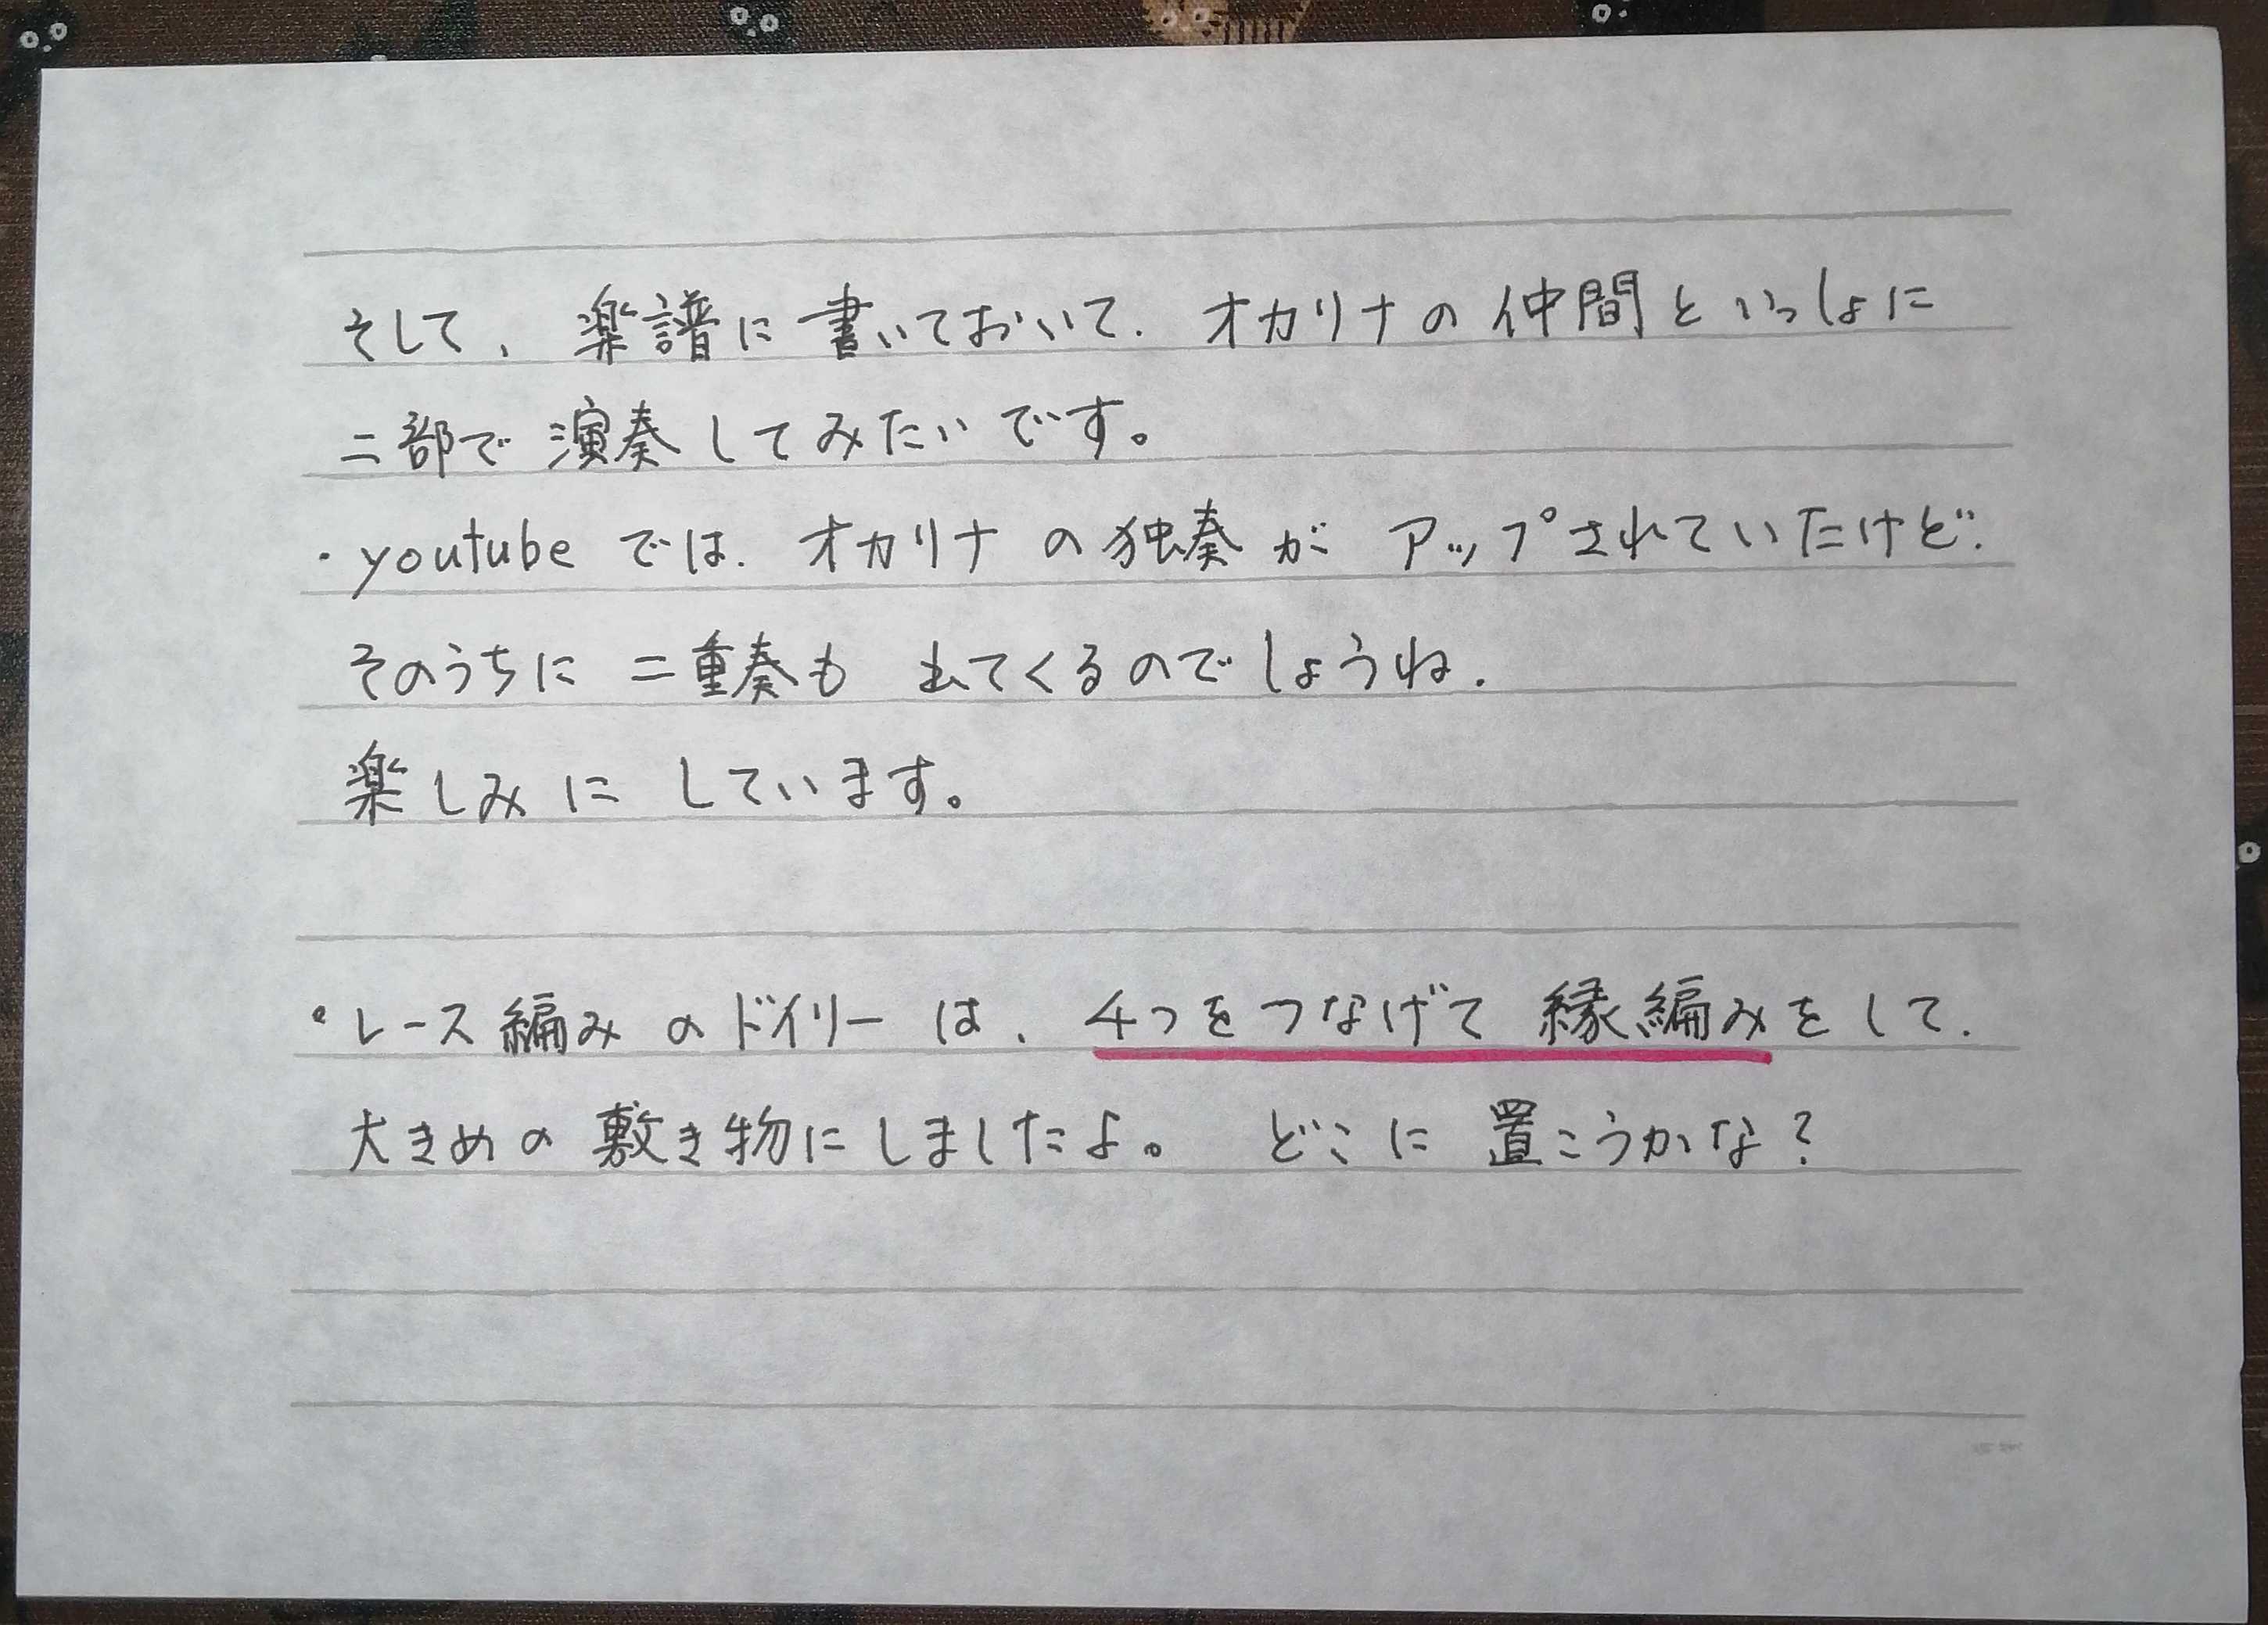 そして、楽譜に書いておいて、オカリナの仲間といっしょに
二部で演奏してみたいです。
・youtubeでは、オカリナの独奏がアップされていたけど、
そのうちに二重奏も出てくるのでしょうね。
楽しみにしています。
・レース編みのドイリーは、4つをつなげて縁編みをして、
大きめの敷き物にしましたよ。 どこに置こうかな?